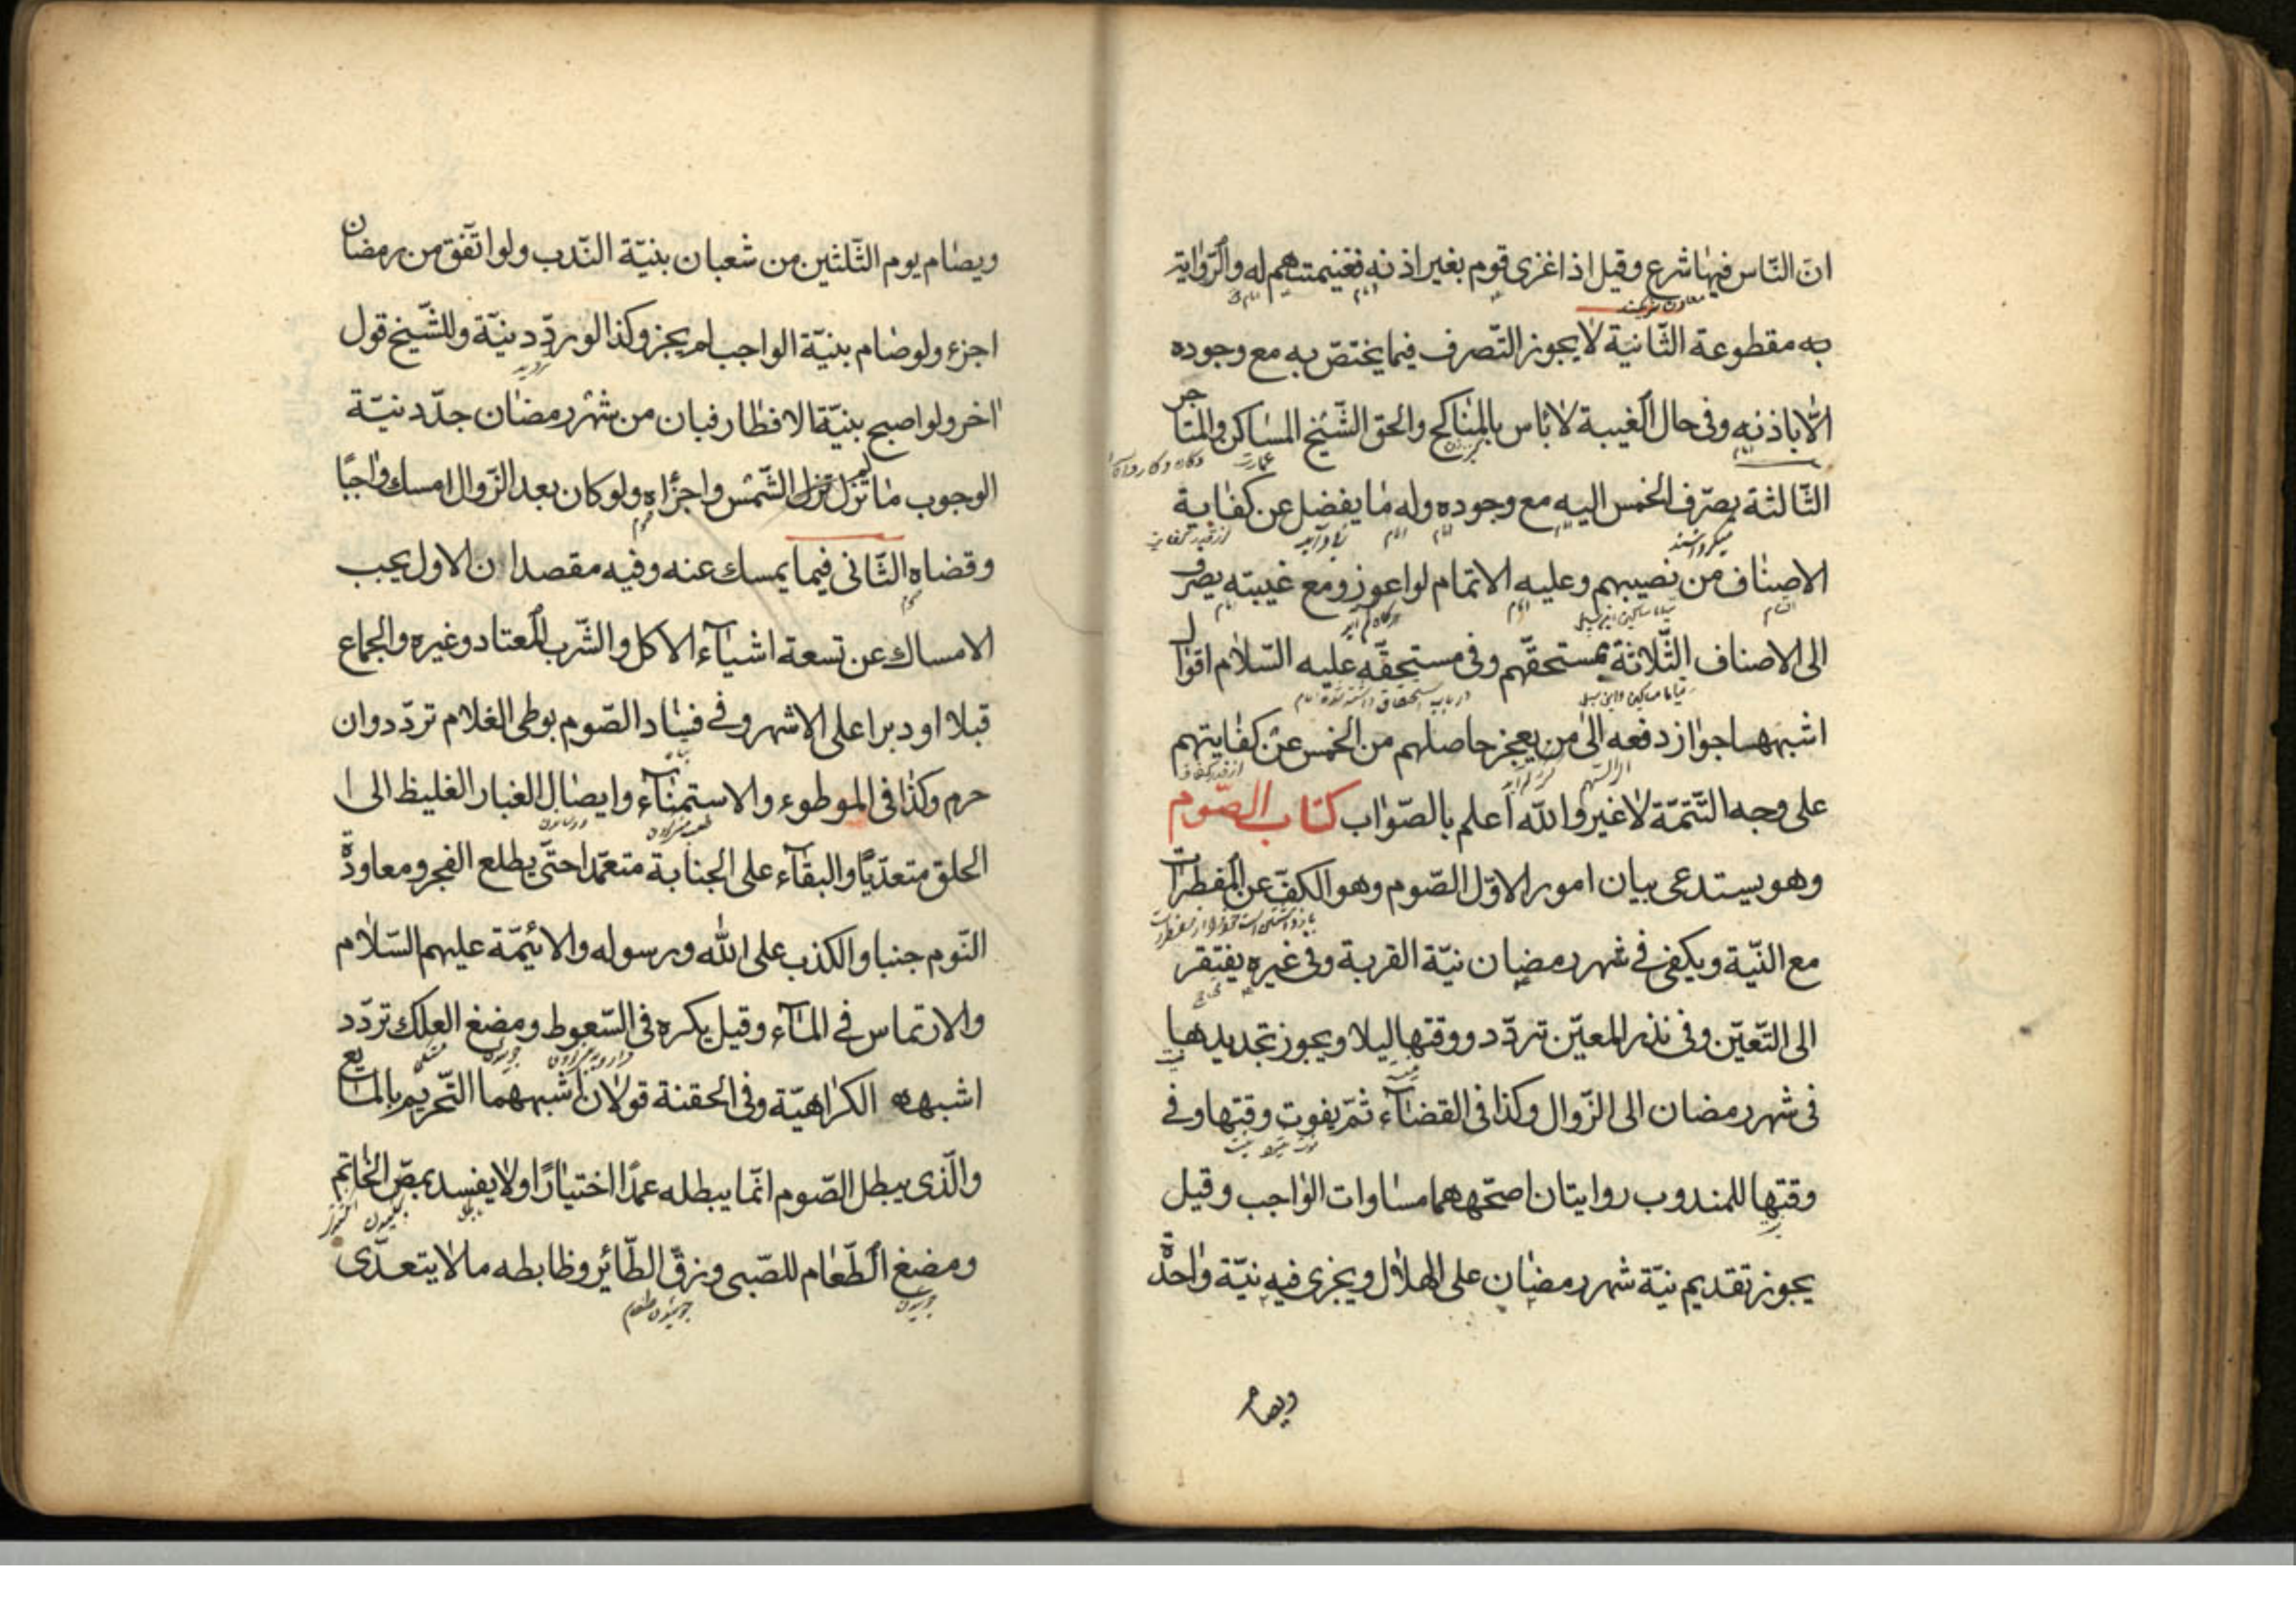 ان النّاس فيها شرع وقيل اذا غزى قوم بغير اذنه فغنيمتهم له والرّواية
به مقطوعة الثّانية لا يجوز التّصرف فيما يختصّ به مع وجوده
الّا باذنه وفى حال الغيبة لا بأس بالمناكح والحق الشّيخ المساكن والمتاجر
الثّالثة يصرّف الخمس اليه مع وجوده وله ما يفضل عن كفاية
الاصناف من نصيبهم وعليه الاتمام لو اعوز ومع غيبته يصرف
الى الاصناف الثّلاثة بمستحقّهم وفى مستحقّه عليه السّلام اقوال
اشبهها جواز دفعه الى من يعجز حاصلهم من الخمس عن كفايتهم
على وجه التّتمّة لا غير والله اعلم بالصّواب كتاب الصّوم
وهو يستدعى بيان امور الاوّل الصّوم وهو الكفّ عن المفطرات
مع النّية ويكفى فى شهر رمضان نيّة القربة وفى غيره يفتقر
الى التّعيّن وفى نذر المعيّن تردّد ووقتها ليلا ويجوز تجديدها
فى شهر رمضان الى الزّوال وكذا فى القضآء ثمّ يفوت وقتها وفى
وقتها للمندوب روايتان اصحّهما مساوات الواجب وقيل
يجوز تقديم نيّة شهر رمضان على الهلال ويجزى فيه نيّة واحدة
ويصام
ويصام يوم الثّلثين من شعبان بنيّة النّدب ولو اتّفق من رمضان
اجزء ولو صام بنيّة الواجب لم يجز وكذا لو ردّد نيّة وللشّيخ قول
اخر ولو اصبح بنيّة الافطار فبان من شهر رمضان جدّد نيّة
الوجوب ما لم تزل الشّمس واجزأه ولو كان بعد الزّوال امسك واجبًا
وقضاه الثّانى فيما يمسك عنه وفيه مقصدان الاول يجب
الامساك عن تسعة اشيآء الاكل والشّرب المعتاد وغيره والجماع
قبلا او دبرا على الاشهر وفى فساد الصّوم بوطى الغلام تردّد وان
حرم وكذا فى الموطوء والاستمنآء وايصال الغبار الغليظ الى ا
الحلق متعدّيًا والبقآء على الجنابة متعمّدا حتّى يطلع الفجر ومعاودة
النّوم جنبا والكذب على الله ورسوله والائمّة عليهم السّلام
والارتماس فى المآء وقيل يكره فى السّعوط ومضغ العلك تردّد
اشبهه الكراهيّة وفى الحقنة قولان اشبههما التّحريم بالمايع
والّذى يبطل الصّوم انّما يبطله عمدًا اختيارًا ولا يفسد بمصّ الخاتم
ومضغ الطّعام للصّبى وزقّ الطّائر وظابطه ما لا يتعدّى